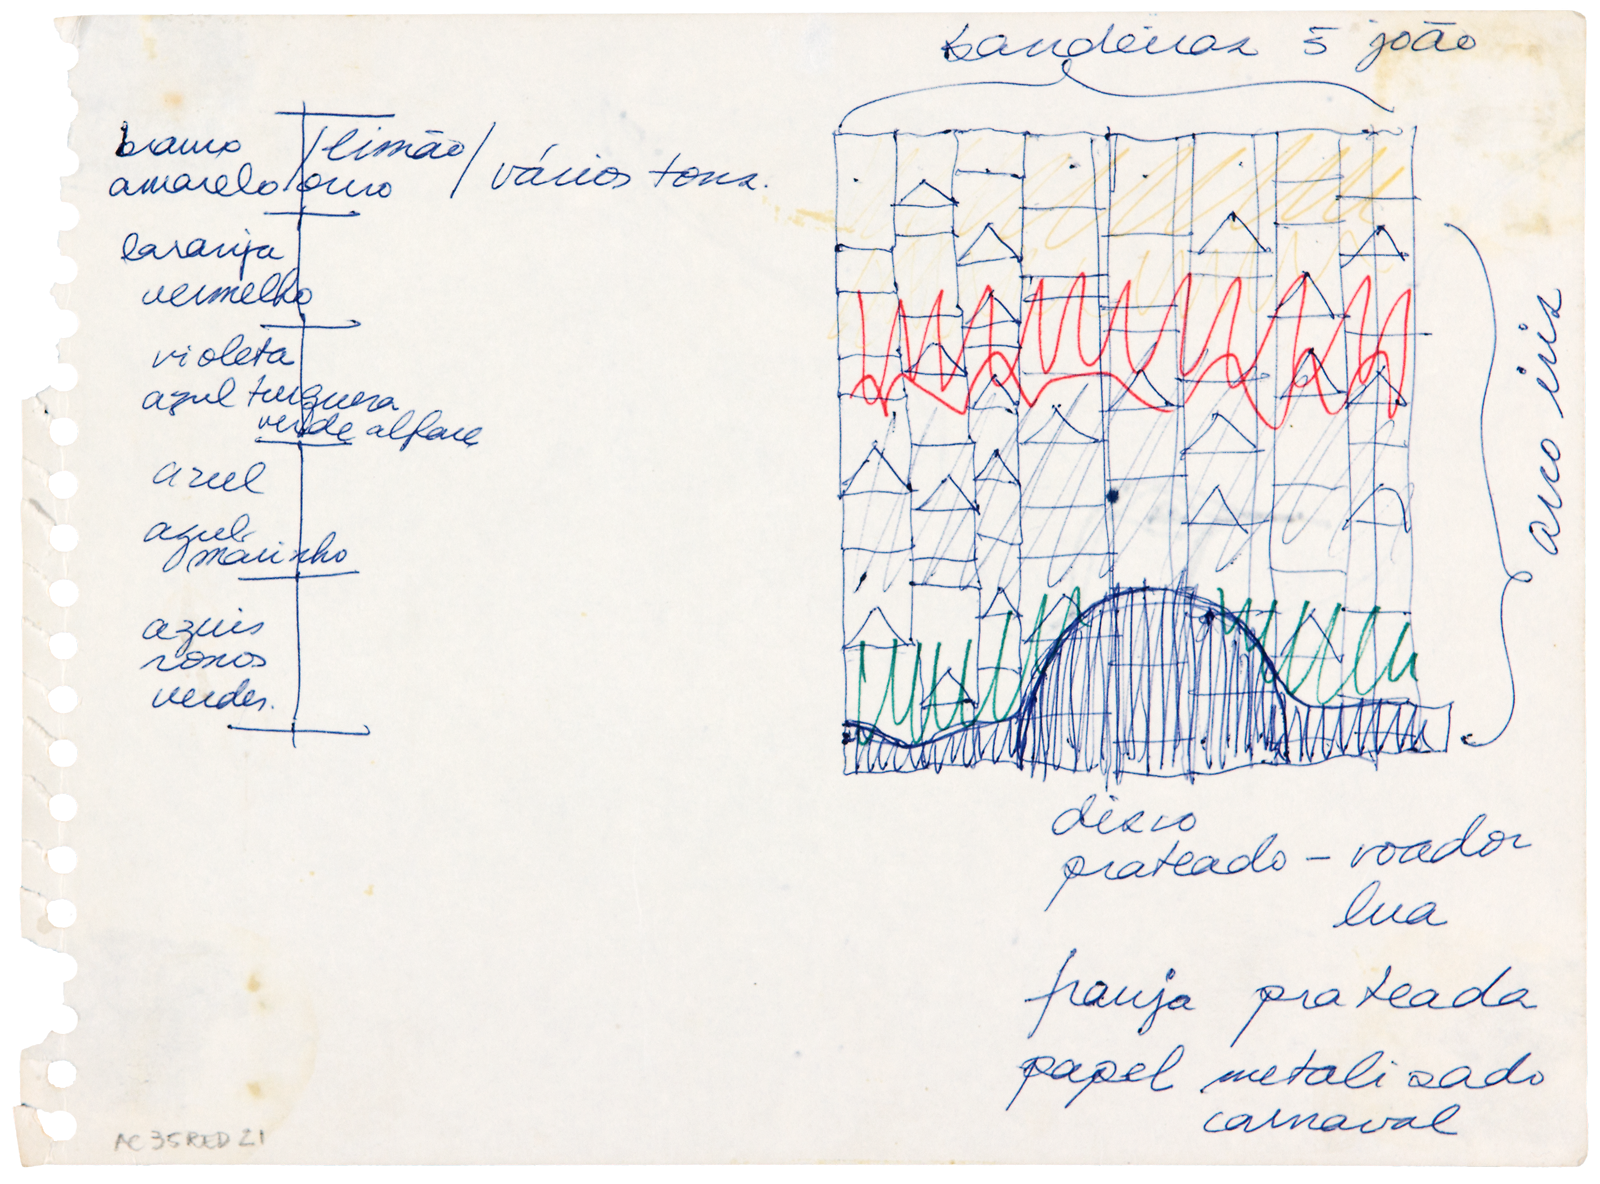 bandeiras S joão
branco /limão/
amarelo/ouro / vários tons.
laranja
vermelho
violeta
azul turquesa
verde alface
azul
azul
marinho
azuis
roxos
verdes.
arco iris
disco
prateado - voador
lua
franja prateada
papel metalisado
carnaval
AC35RED21